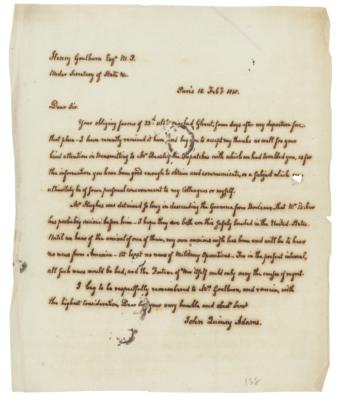 Henry Goulburn Esqr M.P.
Under Secretary of State &c.
Paris 12 Feby 1815.
Dear Sir
Your obliging favour of 23d ulto reached Ghent some days after my departure from
that place. I have recently received it here, and beg you to accept my thanks as well for your
kind attention in transmitting to the despatches with which we had troubled you, as for
the information you have been good enough to obtain and communicate, on a subject which may
ultimately be of some personal convenience to my colleagues or myself.
Mr Hughes was detained so long in descending the Garonne from Bordeaux, that Mr Carroll
has probably arrived before him. I hope they are both ere this safely landed in the United States.
Until we hear of the arrival of one of them, my own anxious wish has been and will be to hear
no news from America. At least no news of Military Operations. For in the present interval,
all such news would be bad, and the Factions of War itself could only carry the curses of regret.
I beg to be respectfully remembered to Mrs Goulburn, and remain, with
the highest consideration Dear Sir your very humble and obedt Servt
John Quincy Adams.
158